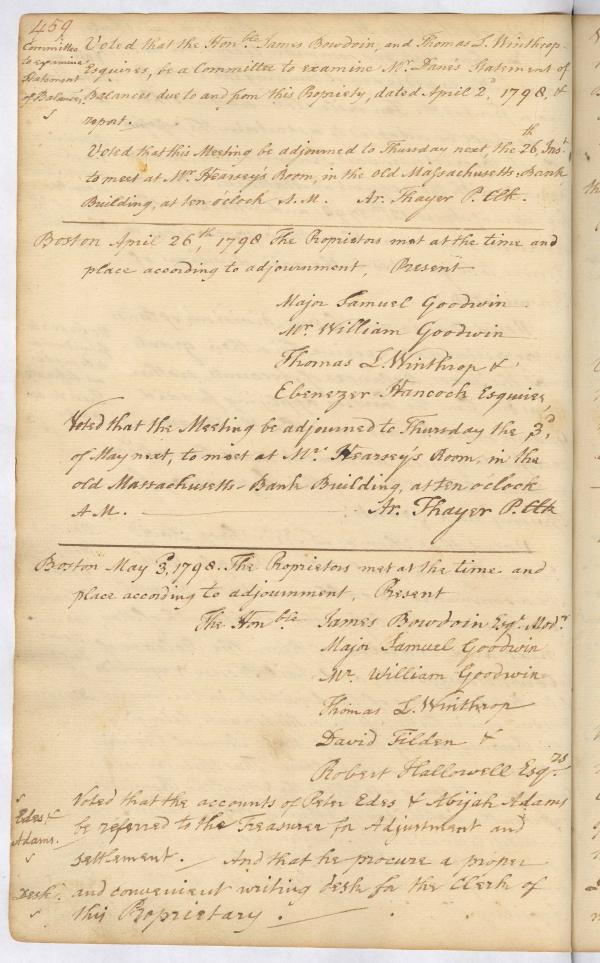 459
Committee
to examine
Statement
of Balances
Voted that the Hon.ble James Bowdoin, and Thomas L. Winthrop
Esquires, be a Committee to examine Mr. Dane's Statement of
Balances due to and from this Propriety, dated April 2d, 1798, &
report.
Voted that this Meeting be adjourned to Thursday next, the 26th Inst.
to meet at Mr. Hearsey's Room, in the old Massachusetts-Bank
Building, at ten o'clock A.M. Ar. Thayer P. Clk.
Boston April 26th, 1798 The Proprietors met at the time and
place according to adjournment, Present
Major Samuel Goodwin
Mr. William Goodwin
Thomas L. Winthrop &
Ebenezer Hancock Esquires,
Voted that the Meeting be adjourned to Thursday the 3d,
of May next, to meet at Mr. Hearsey's Room, in the
old Massachusetts-Bank Building, at ten o'clock
A.M. Ar. Thayer P. Clk
Boston May 3d, 1798. The Proprietors met at the time and
place according to adjournment, Present
The Hon.ble James Bowdoin Esqr. Modr.
Major Samuel Goodwin
Mr. William Goodwin
Thomas L. Winthrop
David Tilden &
Robert Hallowell Esqrs.
Edes &
Adams.
Voted that the accounts of Peter Edes & Abijah Adams
be referred to the Treasurer for Adjustment and
settlement. And that he procure a proper
Desk.
and convenient writing desk for the Clerk of
this Proprietary.